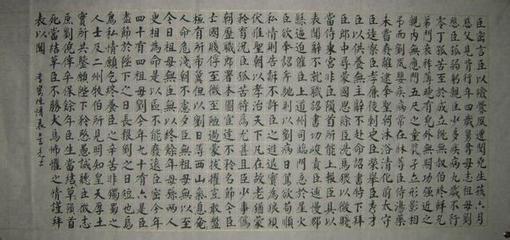 臣密言臣以險釁夙遭閔凶生孩六月
慈父見背行年四歲舅奪母志祖母劉
愍臣孤弱躬親撫養臣少多疾病九歲不行
零丁孤苦至於成立既無叔伯終鮮兄
弟門衰祚薄晚有兒息外無朞功強近之
親內無應門五尺之僮煢煢孑立形影相
弔而劉夙嬰疾病常在牀蓐臣侍湯藥
未嘗廢離逮奉聖朝沐浴清化前太守
臣逵察臣孝廉後刺史臣榮舉臣秀才
臣以供養無主辭不赴命詔書特下拜
臣郎中尋蒙國恩除臣洗馬猥以微賤
當侍東宮非臣隕首所能上報臣具以
表聞辭不就職詔書切峻責臣逋慢郡
縣逼迫催臣上道州司臨門急於星火
臣欲奉詔奔馳則以劉病日篤欲苟順
私情則告訴不許臣之進退實為狼狽
伏惟聖朝以孝治天下凡在故老猶蒙
矜育況臣孤苦特為尤甚且臣少事偽
朝歷職郎署本圖宦達不矜名節今臣
亡國賤俘至微至陋過蒙拔擢豈敢盤
桓有所希冀但以劉日薄西山氣息奄奄
人命危淺朝不慮夕臣無祖母無以至
今日祖母無臣無以終餘年母孫二人
更相為命是以區區不能廢遠臣密今年
四十有四祖母劉今年九十有六是臣
盡節於陛下之日長報劉之日短也烏
鳥私情願乞終養臣之辛苦非獨蜀之
人士及二州牧伯所見明知皇天后土
實所共鑒願陛下矜愍愚誠聽臣微志
庶劉僥倖卒保餘年臣生當隕首
死當結草臣不勝犬馬怖懼之情謹拜
表以聞 李密陳情表